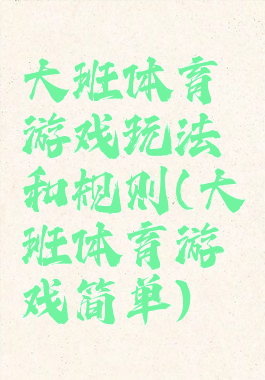 大班体育
游戏玩法
和规则(大
班体育游
戏简单)